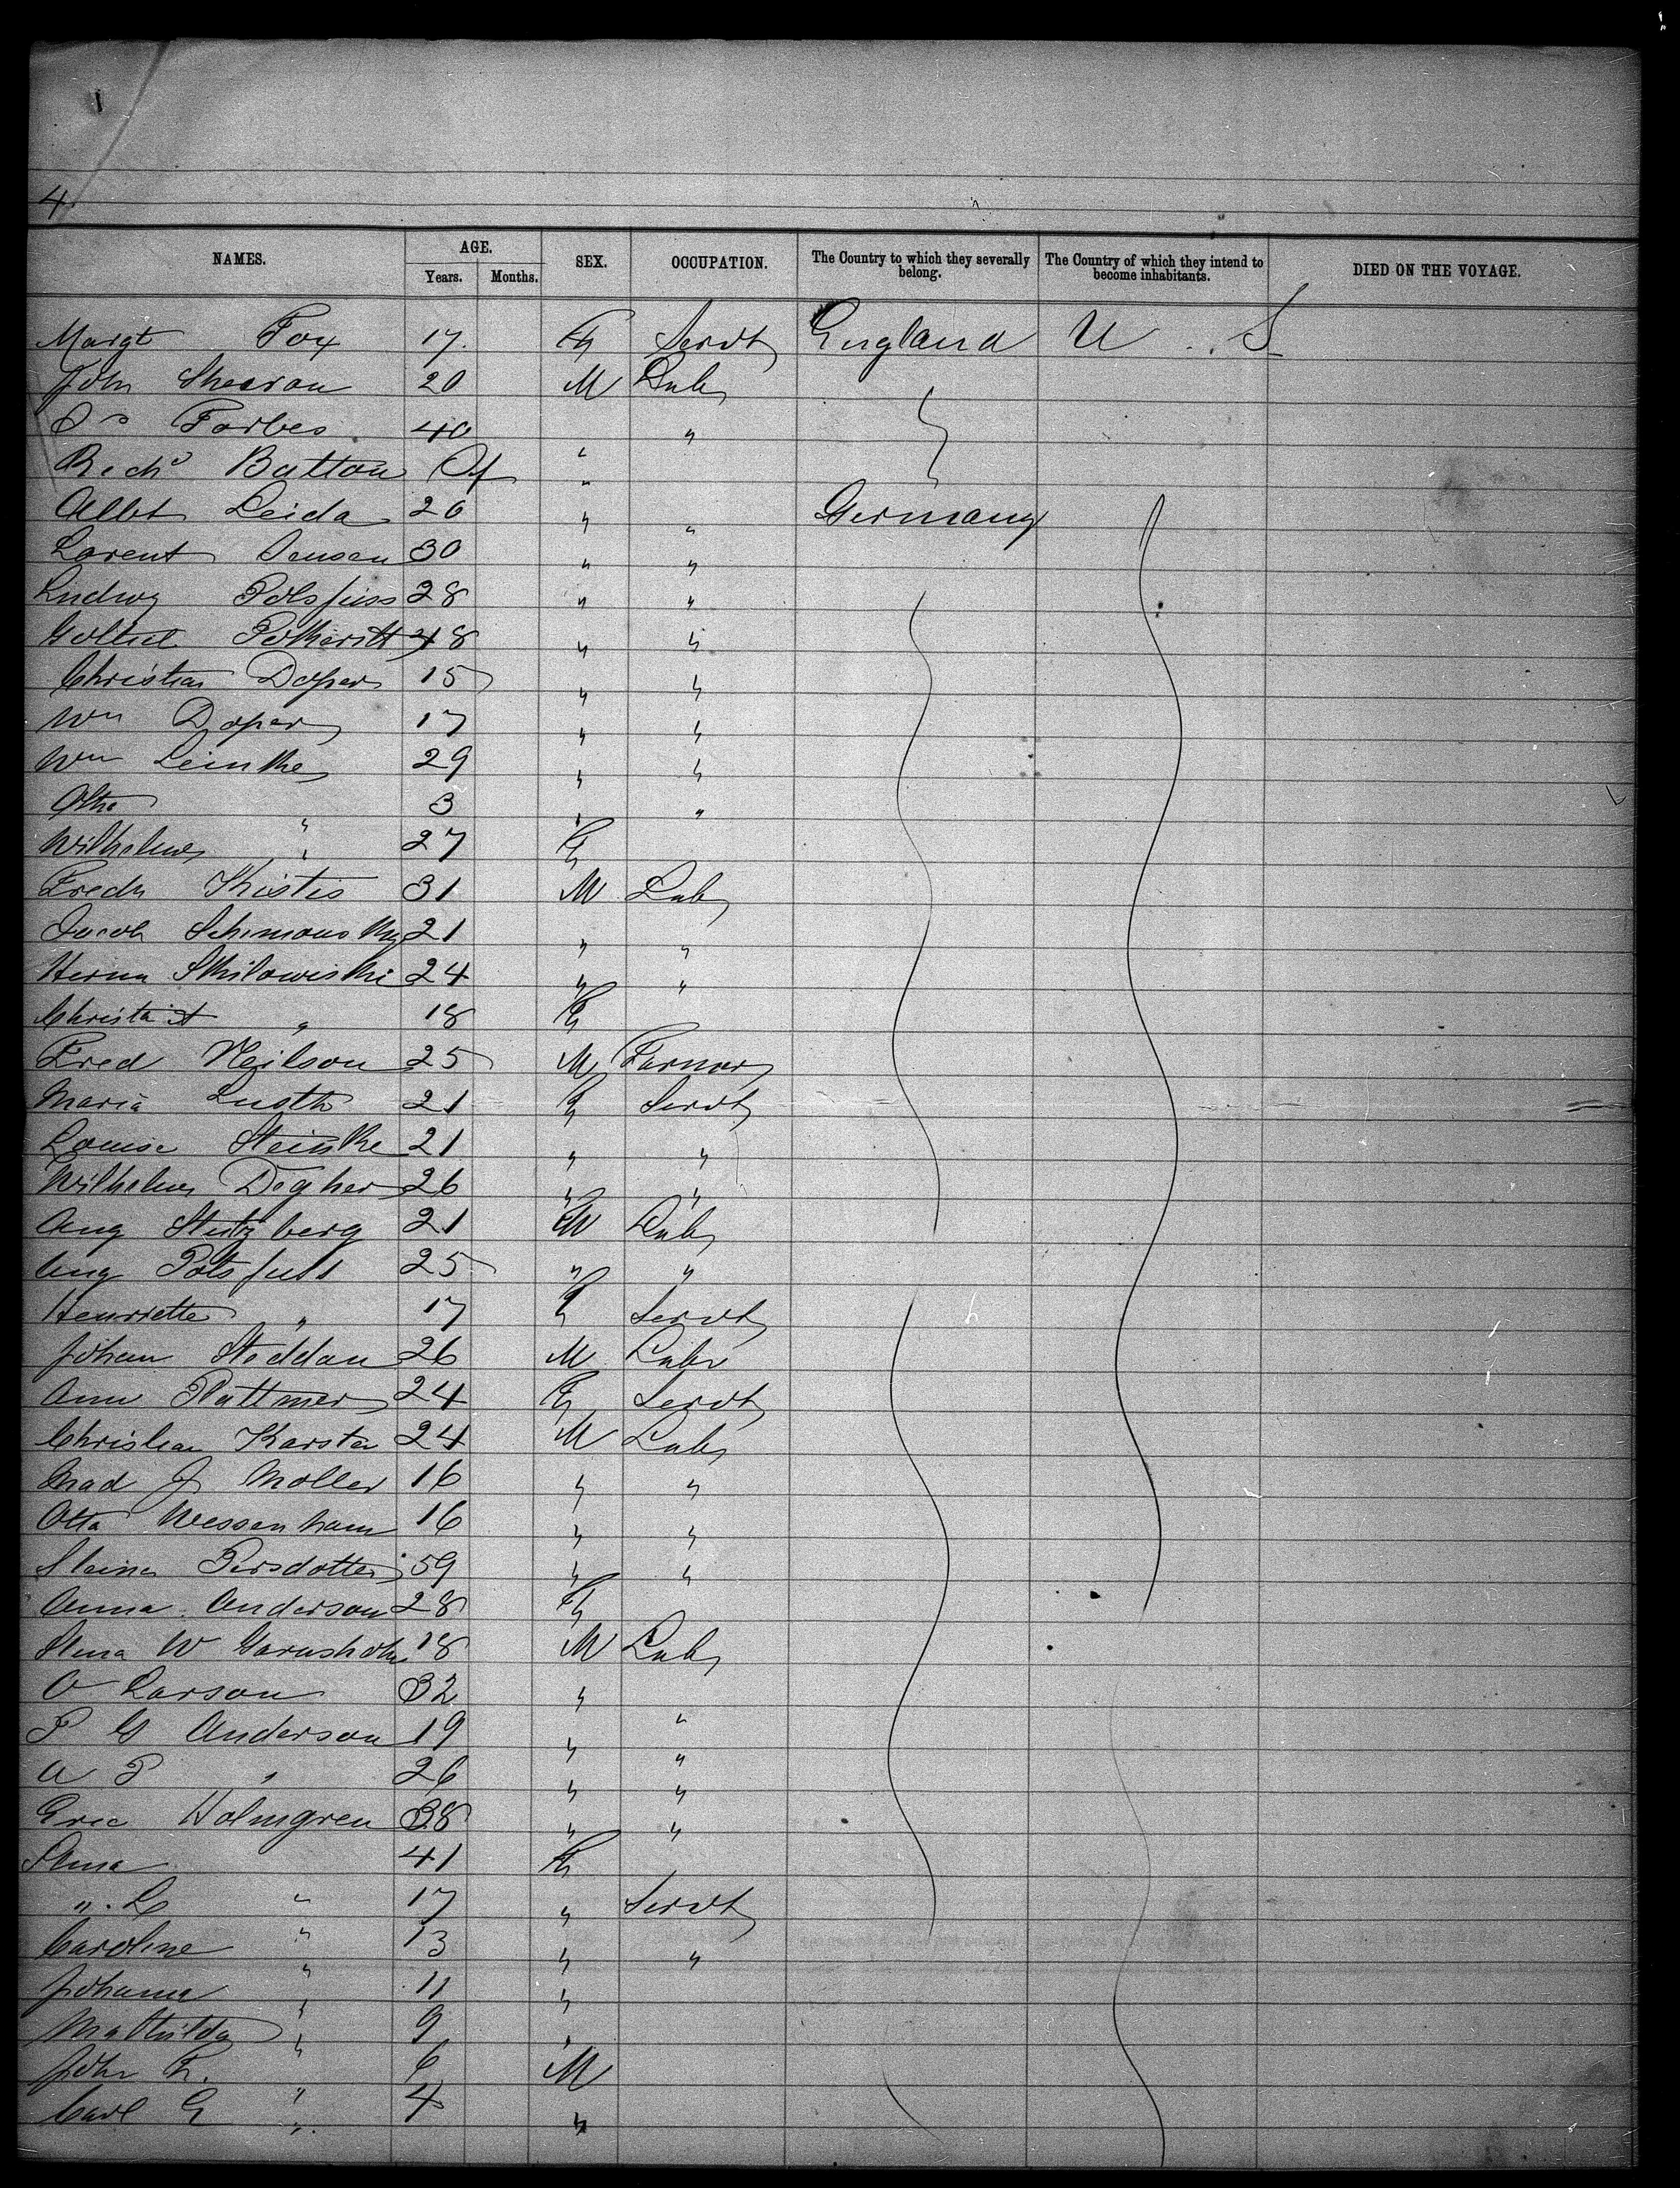 4.
NAMES. AGE. Years. Months. SEX. OCCUPATION. The Country to which they severally belong. The Country of which they intend to become inhabitants. DIED ON THE VOYAGE.
Margt Fox 17 F Servt England U. S
John Shearon 20 M Lab
Forbes 40 " "
Richd Batton "
Albt Leida 20 " " Germany
Larent Jensen 30 " "
Ludwg Polsfuss 28 " "
48 " "
Christian Doper 15 " "
Wm Doper 17 " "
Wm Leinke 29 " "
Otto " 3 " "
Wilhelm " 27 F
Fredk Kristis 31 M Lab
Jacob Schimousky 21 " "
Herma Skilowiski 24 " "
Christa A " 18 F
Fred Neilson 25 M Farmer
Maria Lusth 21 F Servt
Louise Steinke 21 " "
Wilhelm Degher 26 " "
Aug Stutzberg 21 M Lab
Aug Polsfuss 25 " "
Henriette " 17 F Servt
Johan Steddan 26 M Labr
Ann Plattmer 24 F Servt
Christian Karsten 24 M Lab
Mad J Moller 16 " "
Otto Wessenham 16 " "
Steina Persdotter 59 " "
Anna Anderson 28 F
Stina W 18 M Lab
O Larson 32 " "
P G Anderson 19 " "
A P " 26 " "
Eric Holmgren 38 " "
Stina 41 F
" L " 17 " Servt
Caroline " 13 " "
Johanna " 11 "
Mathilda " 9 "
John F. " 6 M
Carl G " 4 "